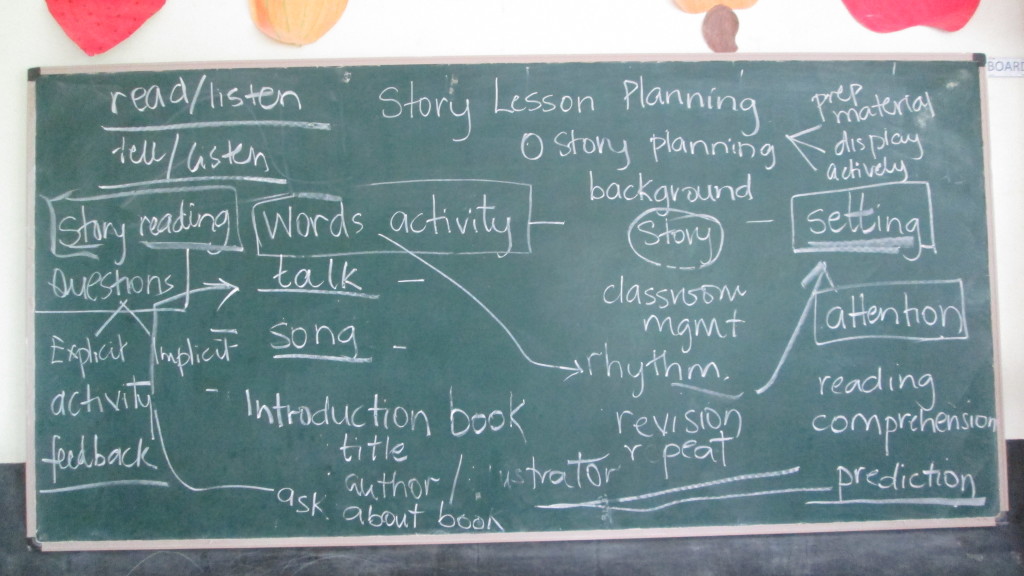 read/listen
tell/listen
Story Lesson Planning
O story planning
prep
material
display
actively
BOARD
Story reading
Words activity —
background
story
— setting
Questions
talk —
classroom
mgmt
attention
Explicit Implicit
song -
rhythm.
activity -
Introduction book
revision
repeat
reading
comprehension
feedback
title
author /
ask about book
prediction